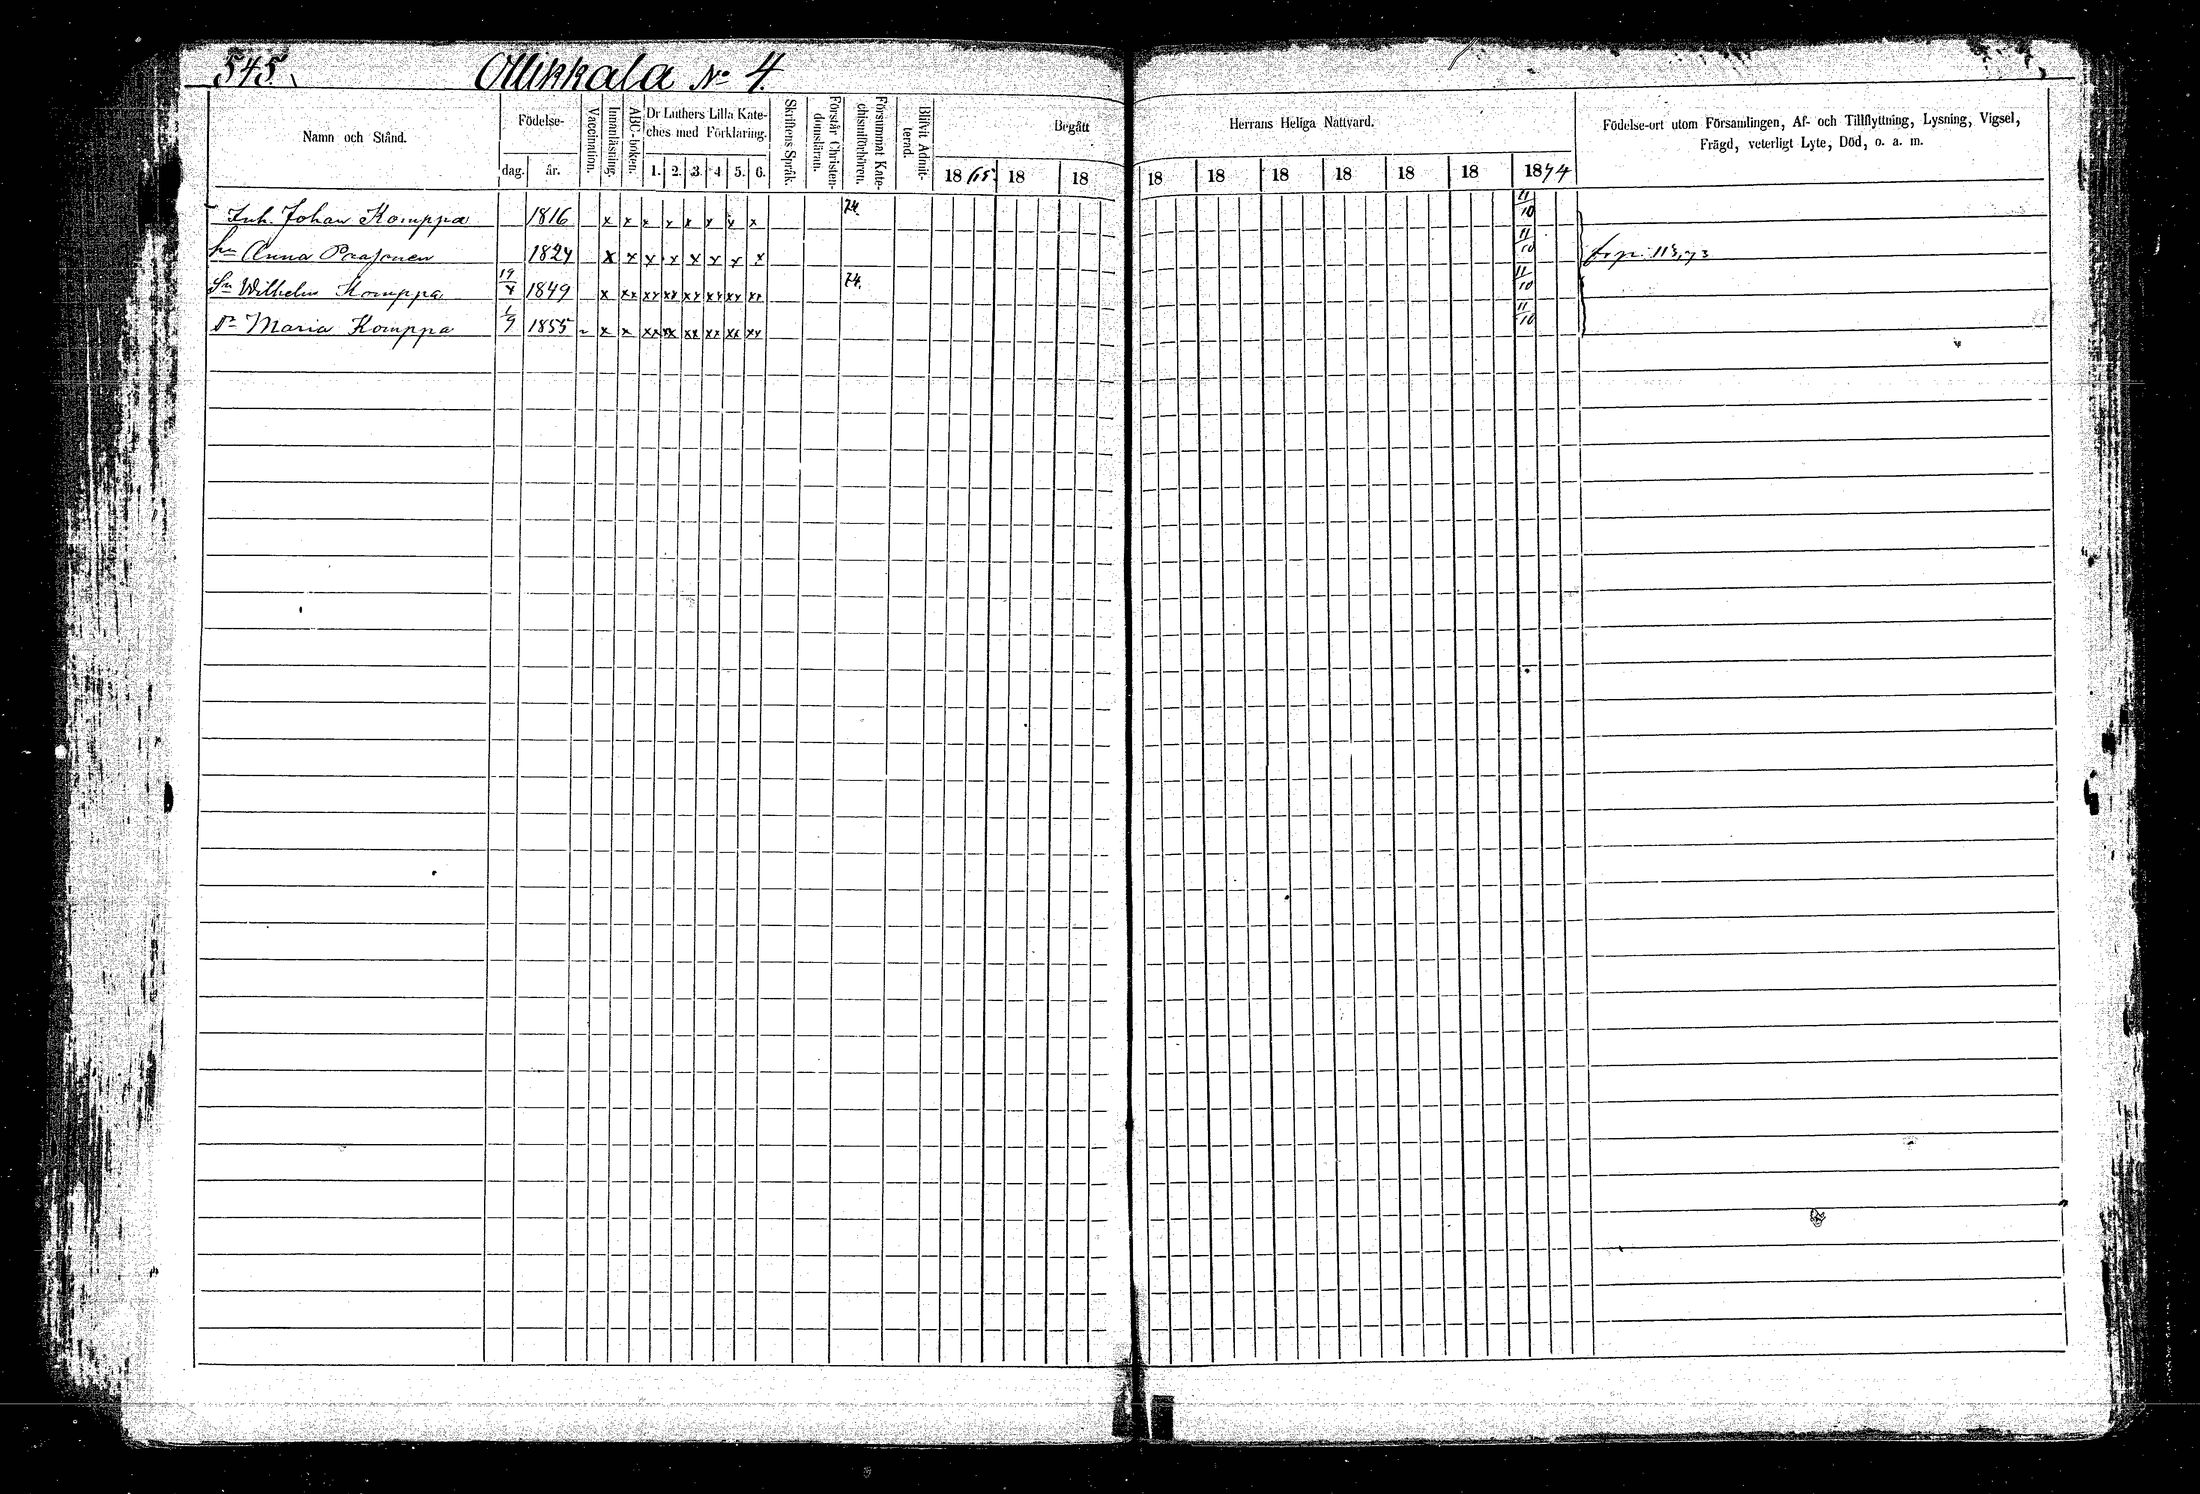 545.
Ollikkala No 4.
Namn och Stånd.
Födelse-
dag.
år.
Vaccination.
Innanläsning.
ABC-boken.
Dr Luthers Lilla Kate-
ches med Förklaring.
1. 2. 3. 4 5. 6.
Skriftens Språk.
Förstår Christen-
domsläran.
Försummat Kate-
chismiförhören.
Blifvit Admit-
terad.
Begått
Herrans Heliga Nattvard.
1865 18 18 18 18 18 18 18 18 1874
Födelse-ort utom Församlingen, Af- och Tillflyttning, Lysning, Vigsel,
Frägd, veterligt Lyte, Död, o. a. m.
Inh. Johan Komppa 1816 x x x x x x x x 74. 11/10
hu Anna 1824 x x x x x x x x 11/10
Sn Wilhelm Komppa 1849 x xx xx xx xx xx xx xx 74. 11/10
Dr Maria Komppa 1855 x x xx xx xx xx xx xx 11/10